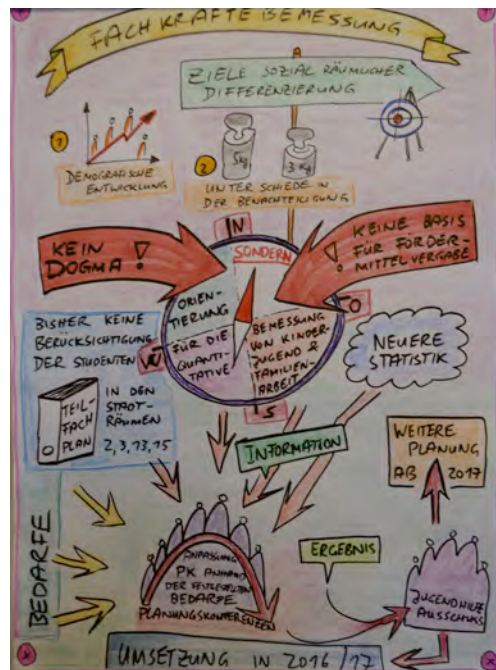 FACHKRÄFTEBEMESSUNG
ZIELE SOZIALRÄUMLICHER
DIFFERENZIERUNG
1
DEMOGRAFISCHE
ENTWICKLUNG
5kg
3kg
2
UNTERSCHIEDE IN
DER BENACHTEILIGUNG
KEIN
DOGMA!
KEINE BASIS
FÜR FÖRDER-
MITTELVERGABE
!
N
SONDERN
O
S
W
ORIEN-
TIERUNG
FÜR DIE
QUANTI-
TATIVE
BEMESSUNG
VON KINDER-
JUGEND &
FAMILIEN-
ARBEIT
BISHER KEINE
BERÜCKSICHTIGUNG
DER STUDENTEN
TEIL-
FACH
PLAN
IN DEN
STADT-
RÄUMEN
2, 3, 13, 15
NEUERE
STATISTIK
INFORMATION
WEITERE
PLANUNG
AB 2017
BEDARFE
ANPASSUNG
PK ANHAND
DER FESTGESTELLTEN
BEDARFE
PLANUNGSKONFERENZEN
ERGEBNIS
JUGENDHILFE
AUSSCHUSS
UMSETZUNG IN 2016/17